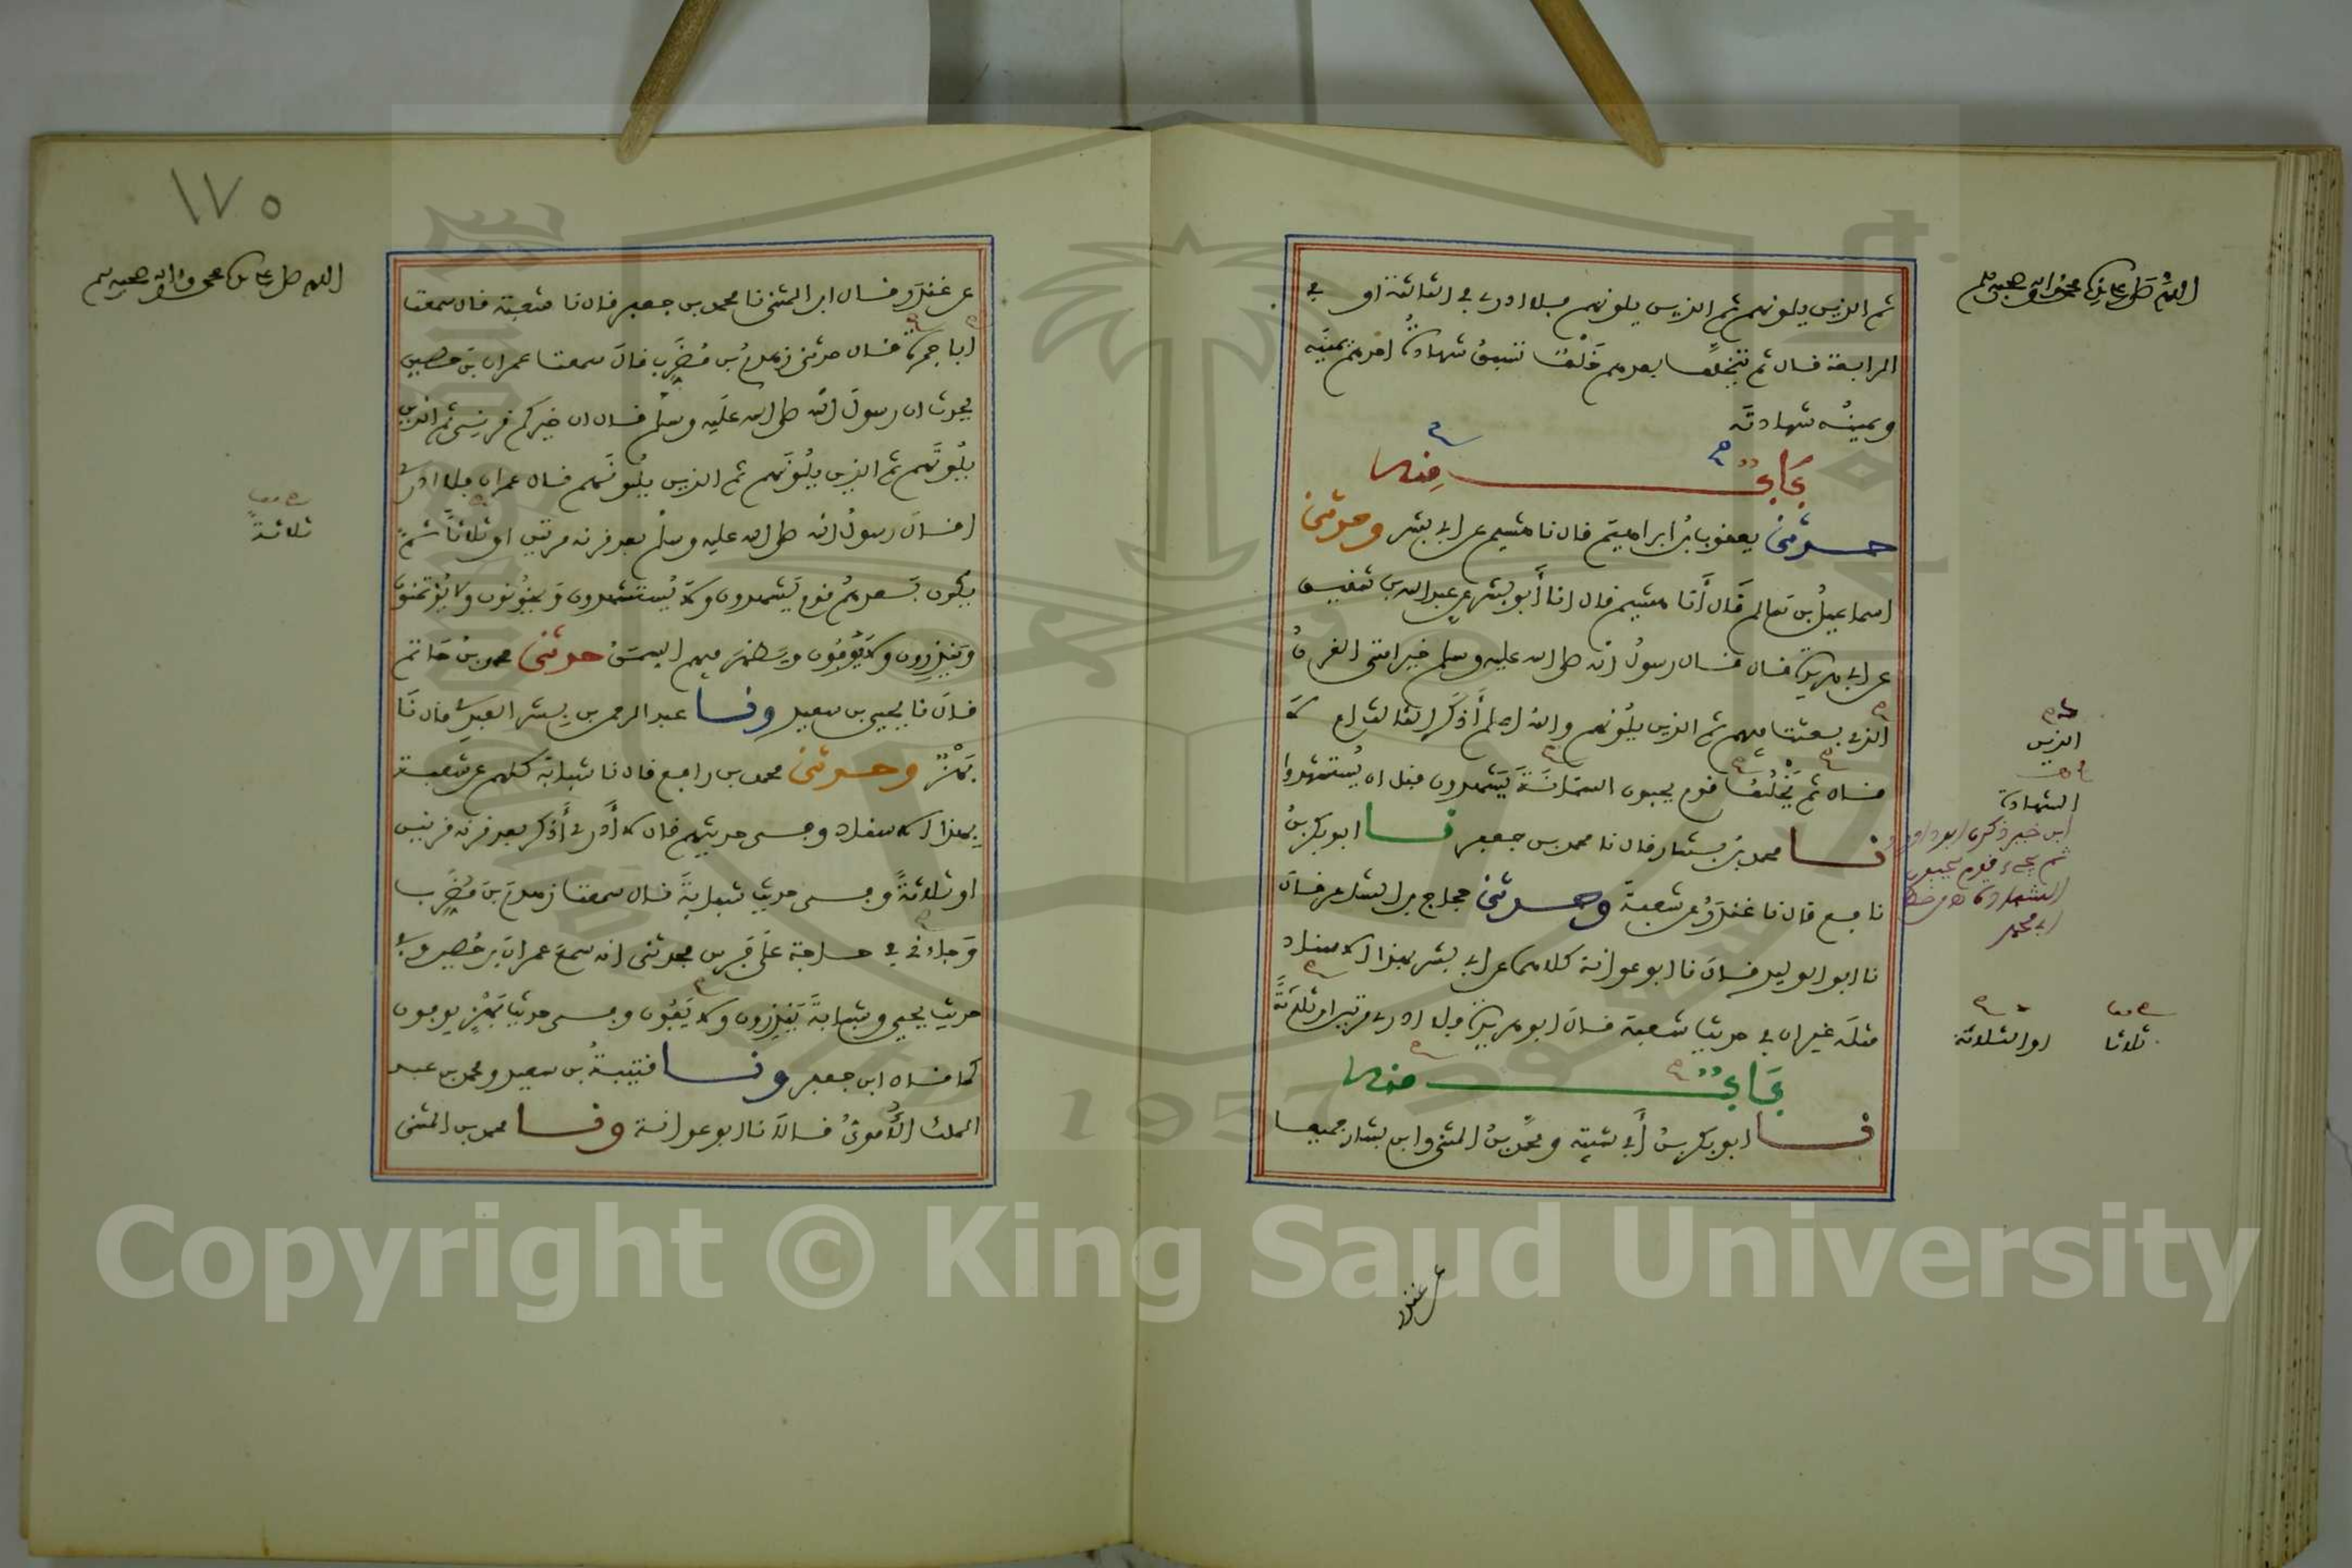 اللهم صل على سيدنا محمد وآله وصحبه وسلم
ثم الذين يلونهم ثم الذين يلونهم فلا ادرى في الثالثة او في
الرابعة قال ثم يتخلف بعدهم خلف تسبق شهادة احدهم يمينه
ويمينه شهادته
باب منه
حدثني يعقوب بن ابراهيم قال نا هشيم عن ابي بشر وحدثني
اسماعيل بن سالم قال أنا هشيم قال انا أبو بشر عن عبد الله بن شقيق
عن ابي هريرة قال قال رسول الله صلى الله عليه وسلم خير امتي القرن
الذي بعثت فيهم ثم الذين يلونهم والله اعلم أذكر الثالث ام لا
قال ثم يخلف قوم يحبون السمانة يشهدون قبل ان يستشهدوا
نا محمد بن بشار قال نا محمد بن جعفر نا ابو بكر بن
نافع قال نا غندر عن شعبة وحدثني حجاج بن الشاعر قال
نا ابو الوليد قال نا ابو عوانة كلاهما عن ابي بشر بهذا الاسناد
مثله غير ان في حديث شعبة قال ابو هريرة فلا ادرى مرتين او ثلاثة
باب منه
نا ابو بكر بن أبي شيبة ومحمد بن المثنى وابن بشار جميعا
الذين
الشهادة
ابن خير ذكره ابو داود
ثم يجيء قوم يحبون
الشهادة
او الثلاثة
ثلاثا
عن غندر
١٧٥
اللهم صل على سيدنا محمد وآله وصحبه وسلم
عن غندر وقال ابن المثنى نا محمد بن جعفر قال نا شعبة قال سمعت
ابا جمرة قال حدثني زهدم بن مضرب قال سمعت عمران بن حصين
يحدث ان رسول الله صلى الله عليه وسلم قال ان خيركم قرني ثم الذين
يلونهم ثم الذين يلونهم ثم الذين يلونهم قال عمران فلا ادرى
اقال رسول الله صلى الله عليه وسلم بعد قرنه مرتين او ثلاثا ثم
يكون بعدهم قوم يشهدون ولا يستشهدون ويخونون ولا يؤتمنون
وينذرون ولا يوفون ويظهر فيهم السمن حدثني محمد بن حاتم
قال نا يحيى بن سعيد ونا عبد الرحمن بن بشر العبدي قال نا
بهز وحدثني محمد بن رافع قال نا شبابة كلهم عن شعبة
بهذا الاسناد وفي حديثهم قال لا أدري أذكر بعد قرنه قرنين
او ثلاثة وفي حديث شبابة قال سمعت زهدم بن مضرب
وجاءني في حاجة على فرس فحدثني انه سمع عمران بن حصين وفي
حديث يحيى وشبابة ينذرون ولا يفون وفي حديث بهز يوفون
كما قال ابن جعفر ونا قتيبة بن سعيد ومحمد بن عبد
الملك الأموي قالا نا ابو عوانة ونا محمد بن المثنى
ثلاثة
Copyright © King Saud University
1957